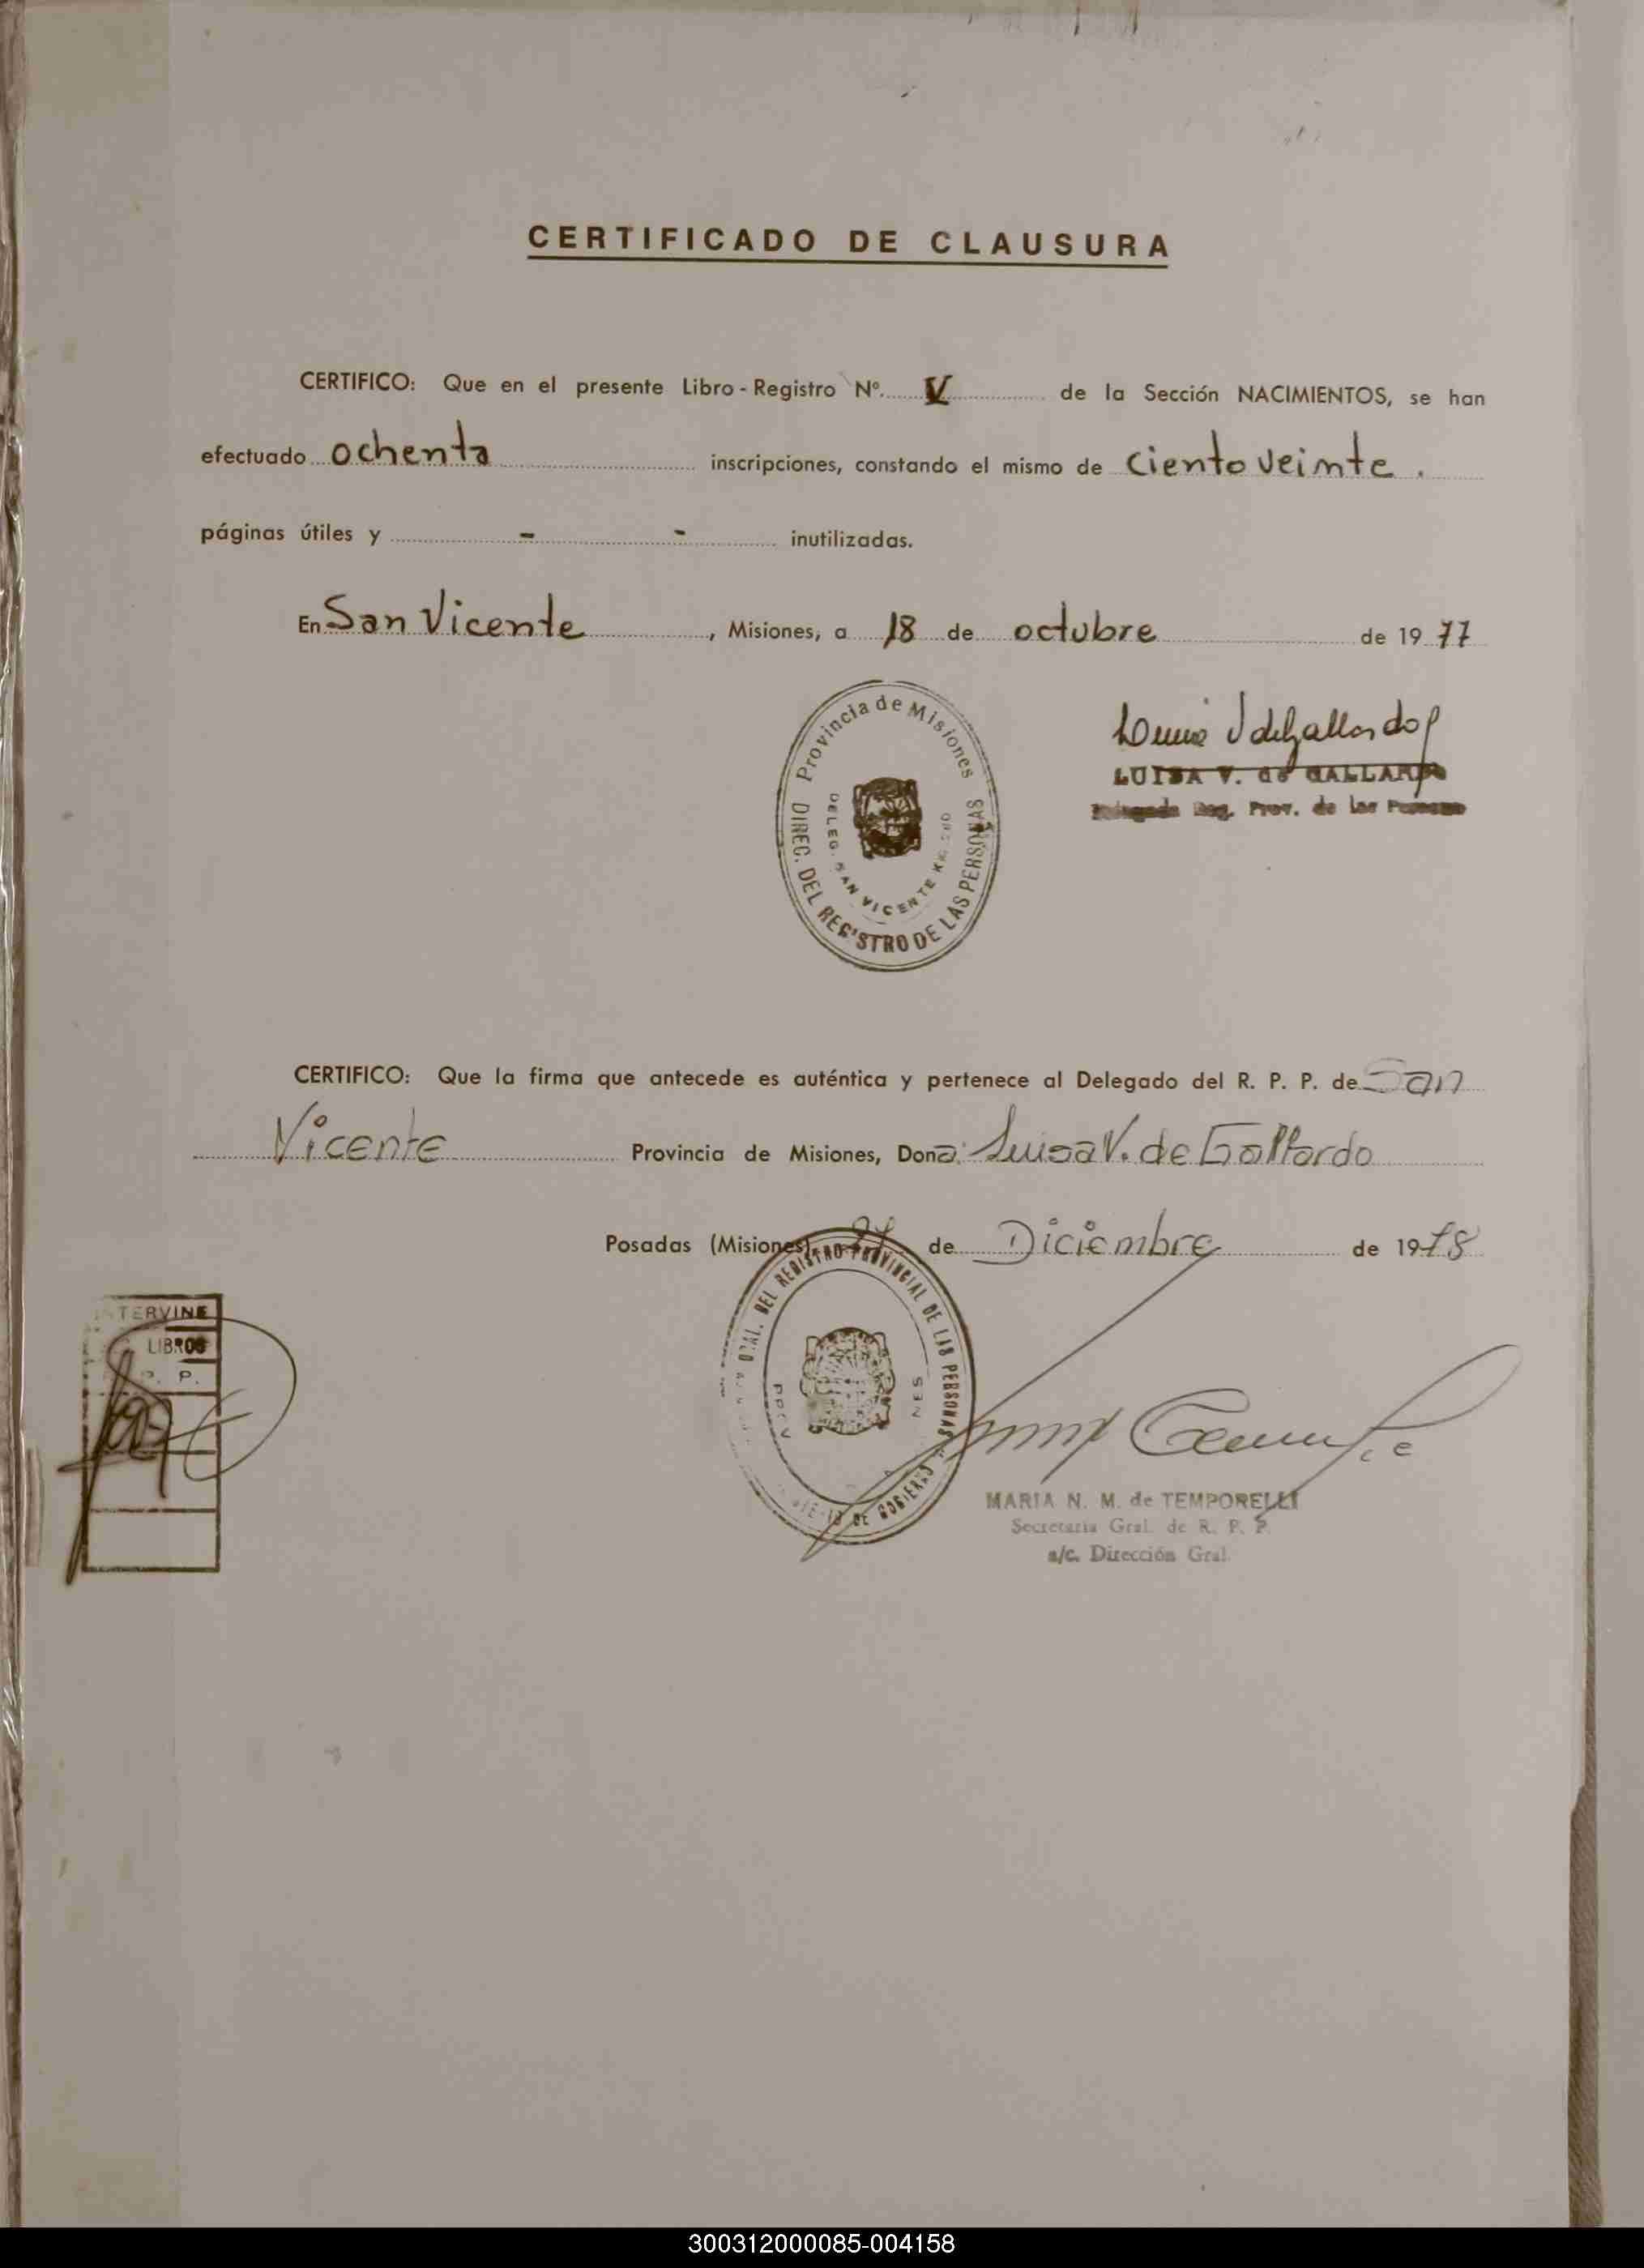 CERTIFICADO DE CLAUSURA
CERTIFICO: Que en el presente Libro - Registro Nº. V de la Sección NACIMIENTOS, se han
efectuado ochenta inscripciones, constando el mismo de ciento veinte.
páginas útiles y - - inutilizadas.
En San Vicente, Misiones, a 18 de octubre de 1977
Provincia de Misiones
DIREC. DEL REGISTRO DE LAS PERSONAS
DELEG. SAN VICENTE
LUISA V. de GALLARDO
Reg. Prov. de las Personas
CERTIFICO: Que la firma que antecede es auténtica y pertenece al Delegado del R. P. P. de San
Vicente Provincia de Misiones, Dona: Luisa V. de Gallardo
Posadas (Misiones), de Diciembre de 1978
GRAL. DEL REGISTRO PROVINCIAL DE LAS PERSONAS
DE GOBIERNO
INTERVINE
LIBROS
P. P.
MARIA N. M. de TEMPORELLI
Secretaria Gral. de R. P. P.
a/c. Dirección Gral.
300312000085-004158